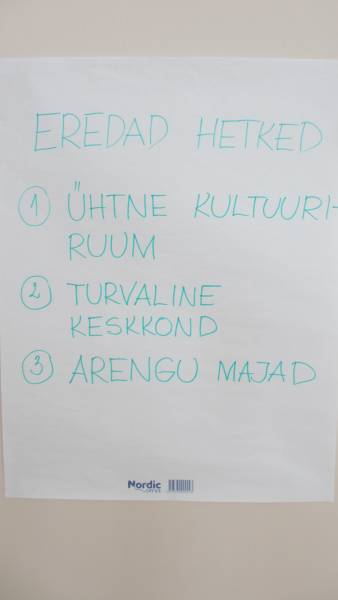 EREDAD HETKED
1 ÜHTNE KULTUURI-
RUUM
2 TURVALINE
KESKKOND
3 ARENGU MAJAD
Nordic
OFFICE